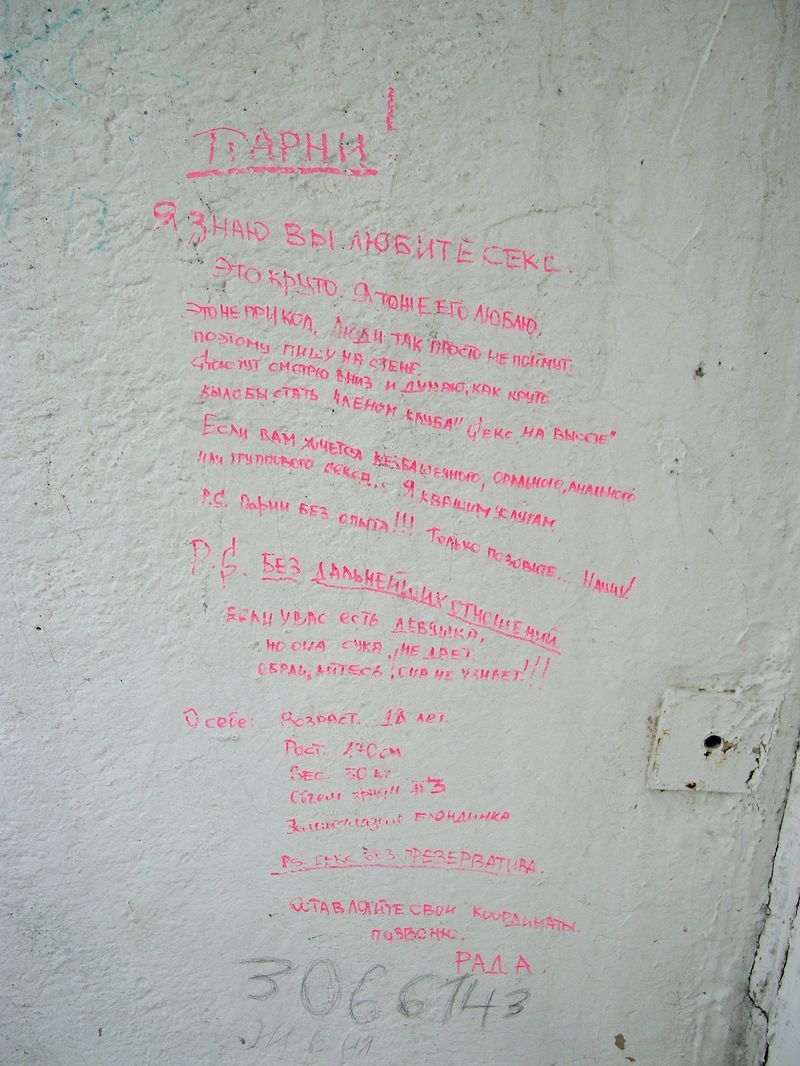 ПАРНИ!
Я ЗНАЮ ВЫ ЛЮБИТЕ СЕКС.
ЭТО КРУТО. Я ТОЖЕ ЕГО ЛЮБЛЮ.
ЭТО НЕ ПРИКОЛ, ЛЮДИ ТАК ПРОСТО НЕ ПОЙМУТ.
ПОЭТОМУ ПИШУ НА СТЕНЕ.
СМОТРЮ ВНИЗ И ДУМАЮ, КАК КРУТО
БЫЛО БЫ СТАТЬ ЧЛЕНОМ КЛУБА "СЕКС НА ВЫСОТЕ"
ЕСЛИ ВАМ ХОЧЕТСЯ БЕЗБАШЕННОГО, ОРАЛЬНОГО, АНАЛЬНОГО
ИЛИ ГРУППОВОГО СЕКСА... Я К ВАШИМ УСЛУГАМ
P.S. ПАРНИ БЕЗ ОПЫТА!!! ТОЛЬКО ПОЗОВИТЕ... НАУЧУ!
P.S. БЕЗ ДАЛЬНЕЙШИХ ОТНОШЕНИЙ
ЕСЛИ У ВАС ЕСТЬ ДЕВУШКА,
НО ОНА СУКА, НЕ ДАЕТ.
ОБРАЩАЙТЕСЬ, ОНА НЕ УЗНАЕТ!!!
О себе: Возраст. 18 лет.
Рост. 170 см.
Вес. 50 кг
Объем груди #3
БЛОНДИНКА
PS СЕКС БЕЗ ПРЕЗЕРВАТИВА.
ОСТАВЛЯЙТЕ СВОИ КООРДИНАТЫ.
ПОЗВОНЮ.
РАДА.
3066143